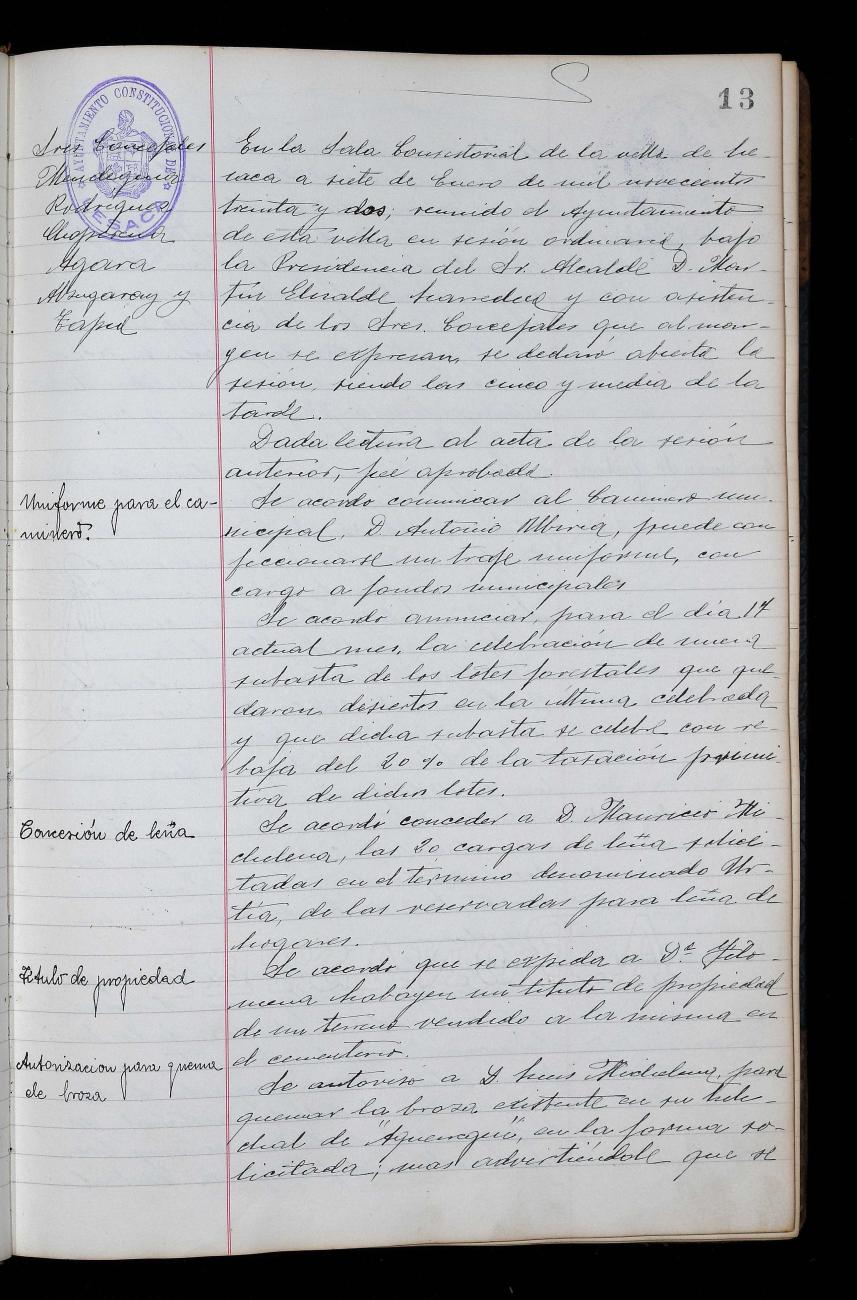 13
AYUNTAMIENTO CONSTITUCIONAL DE
LESACA
Sres. Concejales
Mendeguia
Rodriguez
Choperena
Agara
Alzugaray y
Tapia
En la Sala Consistorial de la villa de Le-
saca a siete de Enero de mil novecientos
treinta y dos; reunido el Ayuntamiento
de esta villa en sesión ordinaria, bajo
la Presidencia del Sr. Alcalde D. Mar-
tin Elizalde y con asisten-
cia de los Sres. Concejales que al mar-
gen se expresan, se declaró abierta la
sesión, siendo las cinco y media de la
tarde.
Dada lectura al acta de la sesión
anterior, fué aprobada.
Uniforme para el ca-
minero.
Se acordo comunicar al Caminero mu-
nicipal, D. Antonio, puede con
feccionarse un traje uniforme, con
cargo a fondos municipales
Se acordo anunciar, para el dia 17
actual mes, la celebración de nueva
subasta de los lotes forestales que que-
daron desiertos en la última celebrada
y que dicha subasta se celebre con re-
baja del 20 % de la tasación primi-
tiva de dichos lotes.
Concesión de leña
Se acordó conceder a D. Mauricio Mi-
chelena, las 20 cargas de leña solici-
tadas en el término denominado Ur-
tia, de las reservadas para leña de
hogares.
Titulo de propiedad
Se acordó que se expida a Dª Filo-
mena un titulo de propiedad
de un terreno vendido a la misma en
el cementerio.
Autorizacion para quema
de broza
Se autorisó a D. Luis Michelena, para
quemar la broza existente en su hele-
chal de en la forma so-
licitada; mas advertiéndole que se